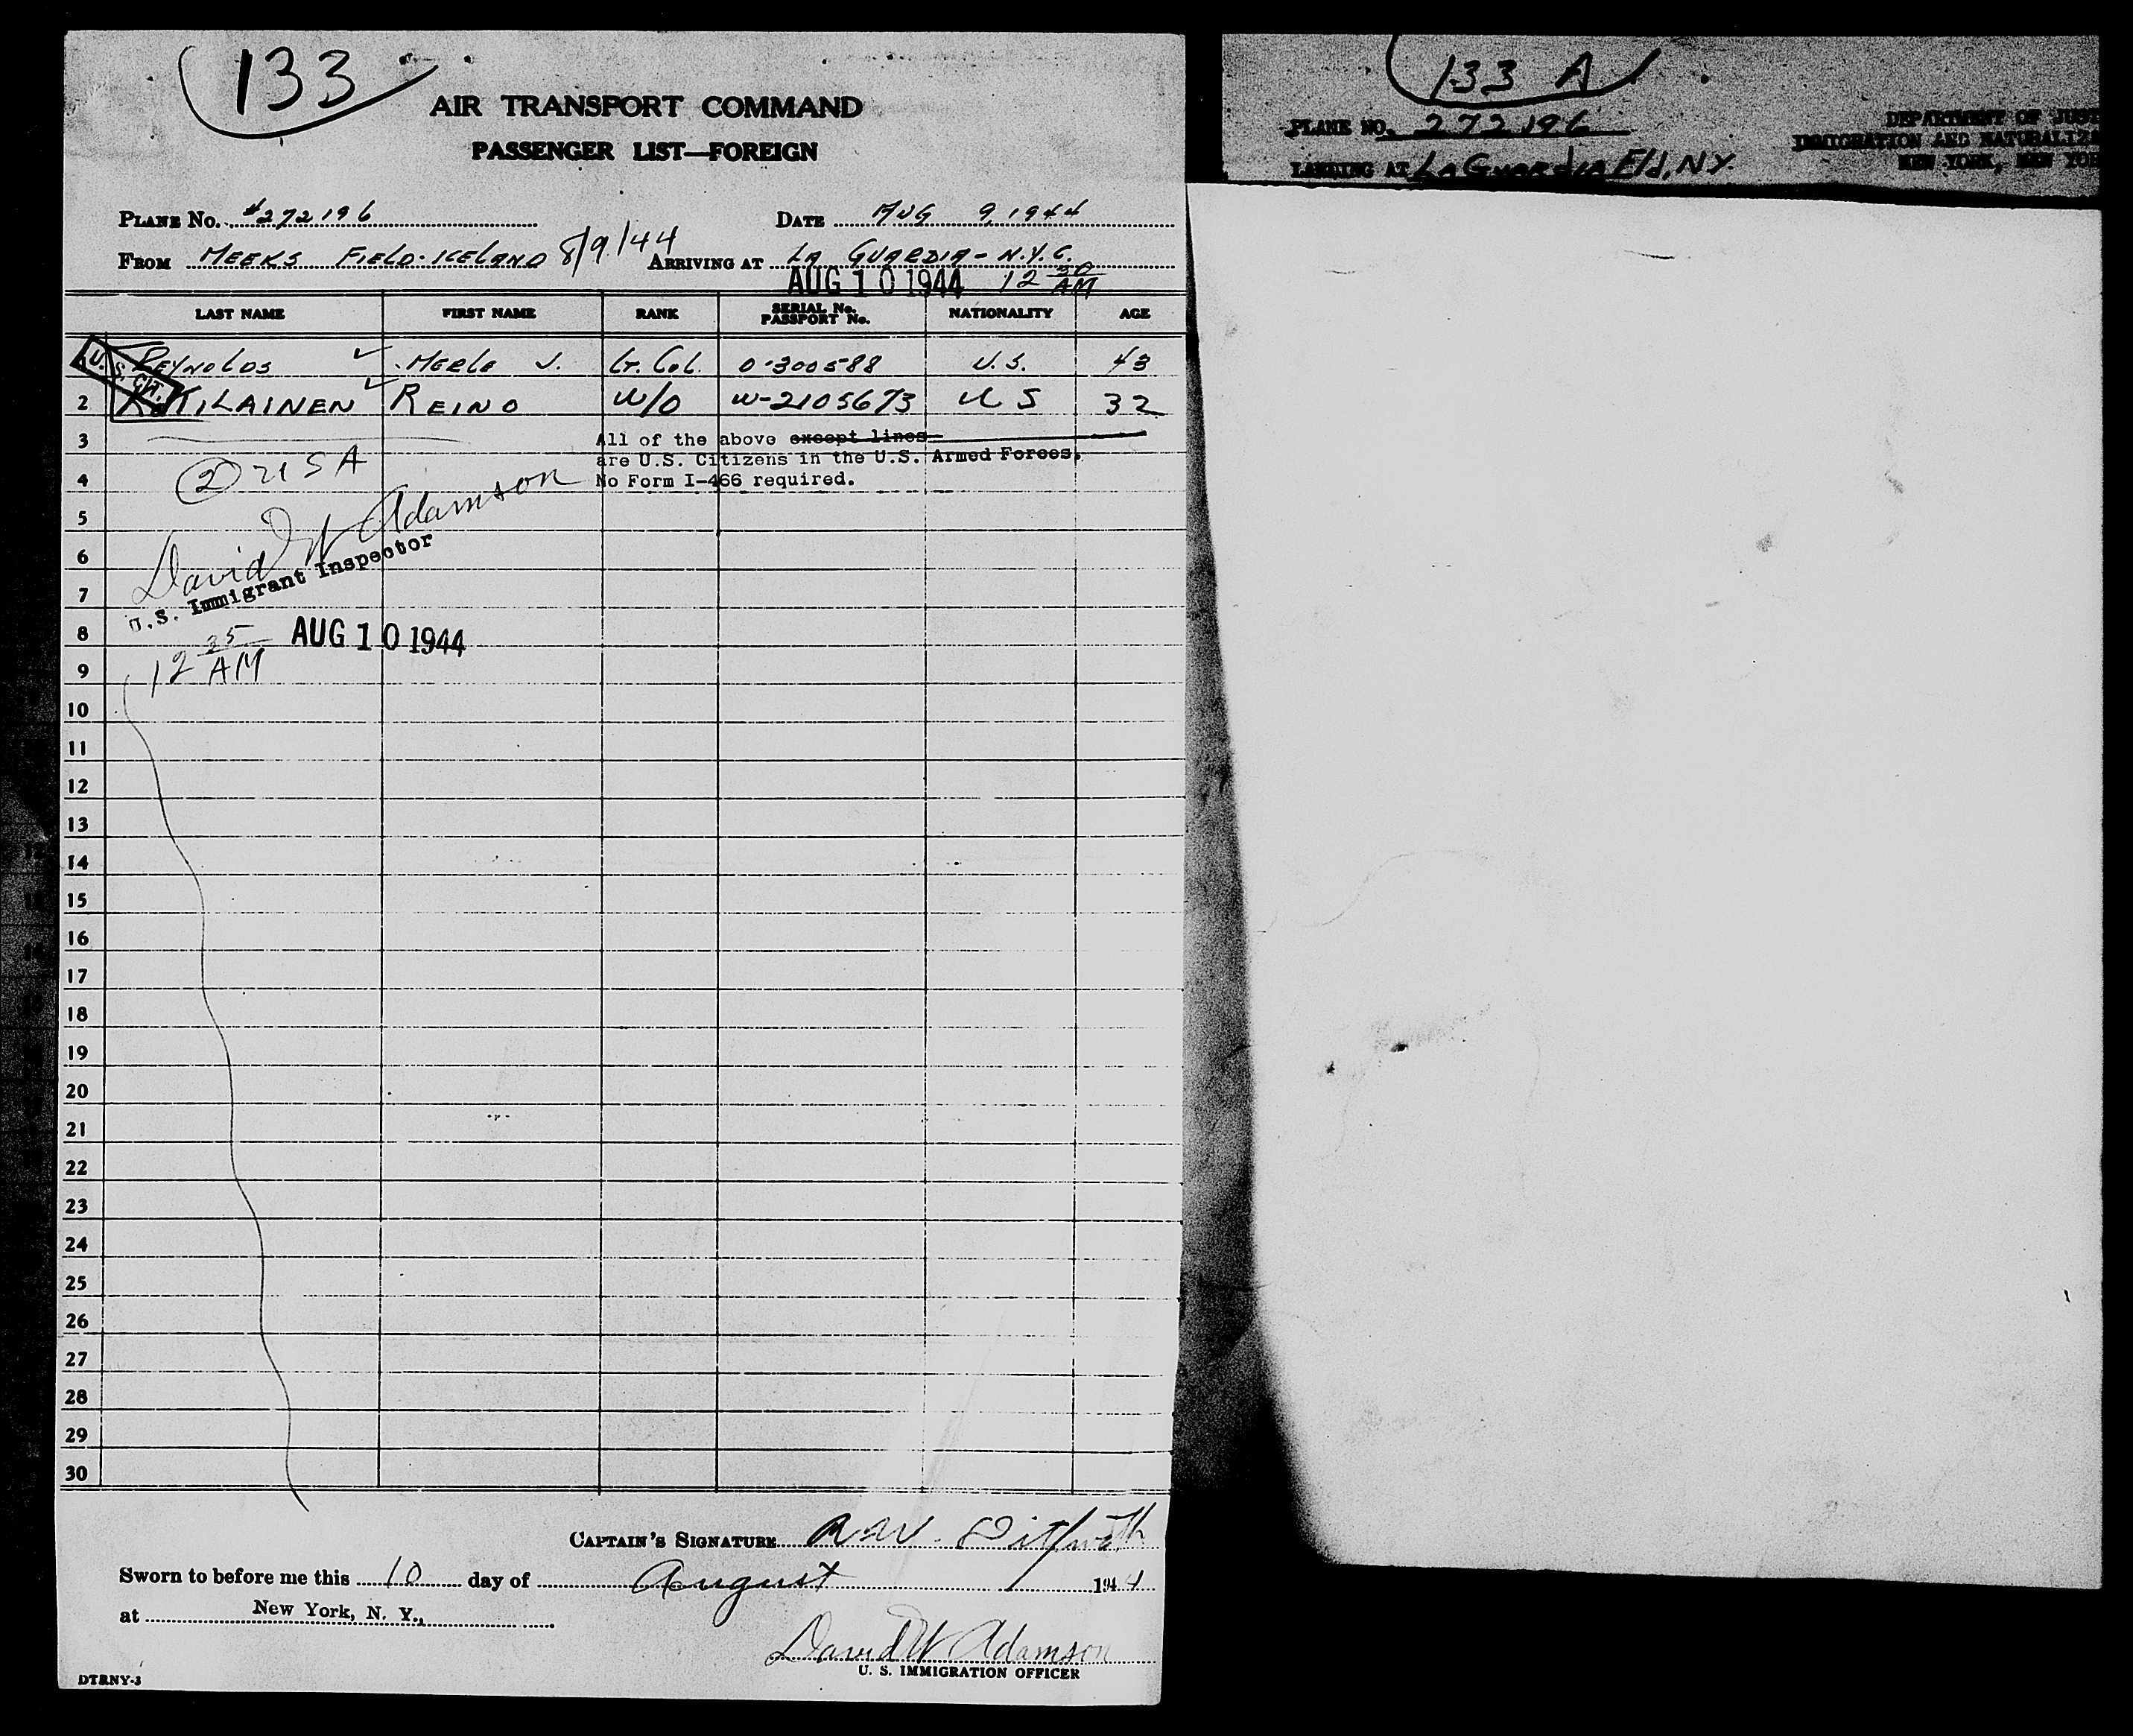 133
AIR TRANSPORT COMMAND
PASSENGER LIST—FOREIGN
PLANE No. #272196 DATE AUG 9, 1944
FROM MEEKS FIELD-ICELAND 8/9/44 ARRIVING AT LA GUARDIA - N.Y.C.
AUG 10 1944 12 30 AM
LAST NAME FIRST NAME RANK SERIAL No. PASSPORT No. NATIONALITY AGE
U.S. CIT.
REYNOLDS MERLE J. Lt. Col. 0-300588 U.S. 43
2 REINO W/O W-2105673 US 32
3 All of the above except lines
② USA are U.S. Citizens in the U.S. Armed Forces.
4 No Form I-466 required.
5
David W Adamson
6
U.S. Immigrant Inspector
7
8 AUG 10 1944
12 35 AM
9
10
11
12
13
14
15
16
17
18
19
20
21
22
23
24
25
26
27
28
29
30
CAPTAIN'S SIGNATURE
Sworn to before me this 10 day of August 1944
at New York, N. Y.,
David W Adamson
U. S. IMMIGRATION OFFICER
DTRNY-3
133 A
PLANE NO. 272196
LANDING AT LaGuardia Fld, N.Y.
DEPARTMENT OF JUST
IMMIGRATION AND NATURALIZA
NEW YORK, NEW YOR